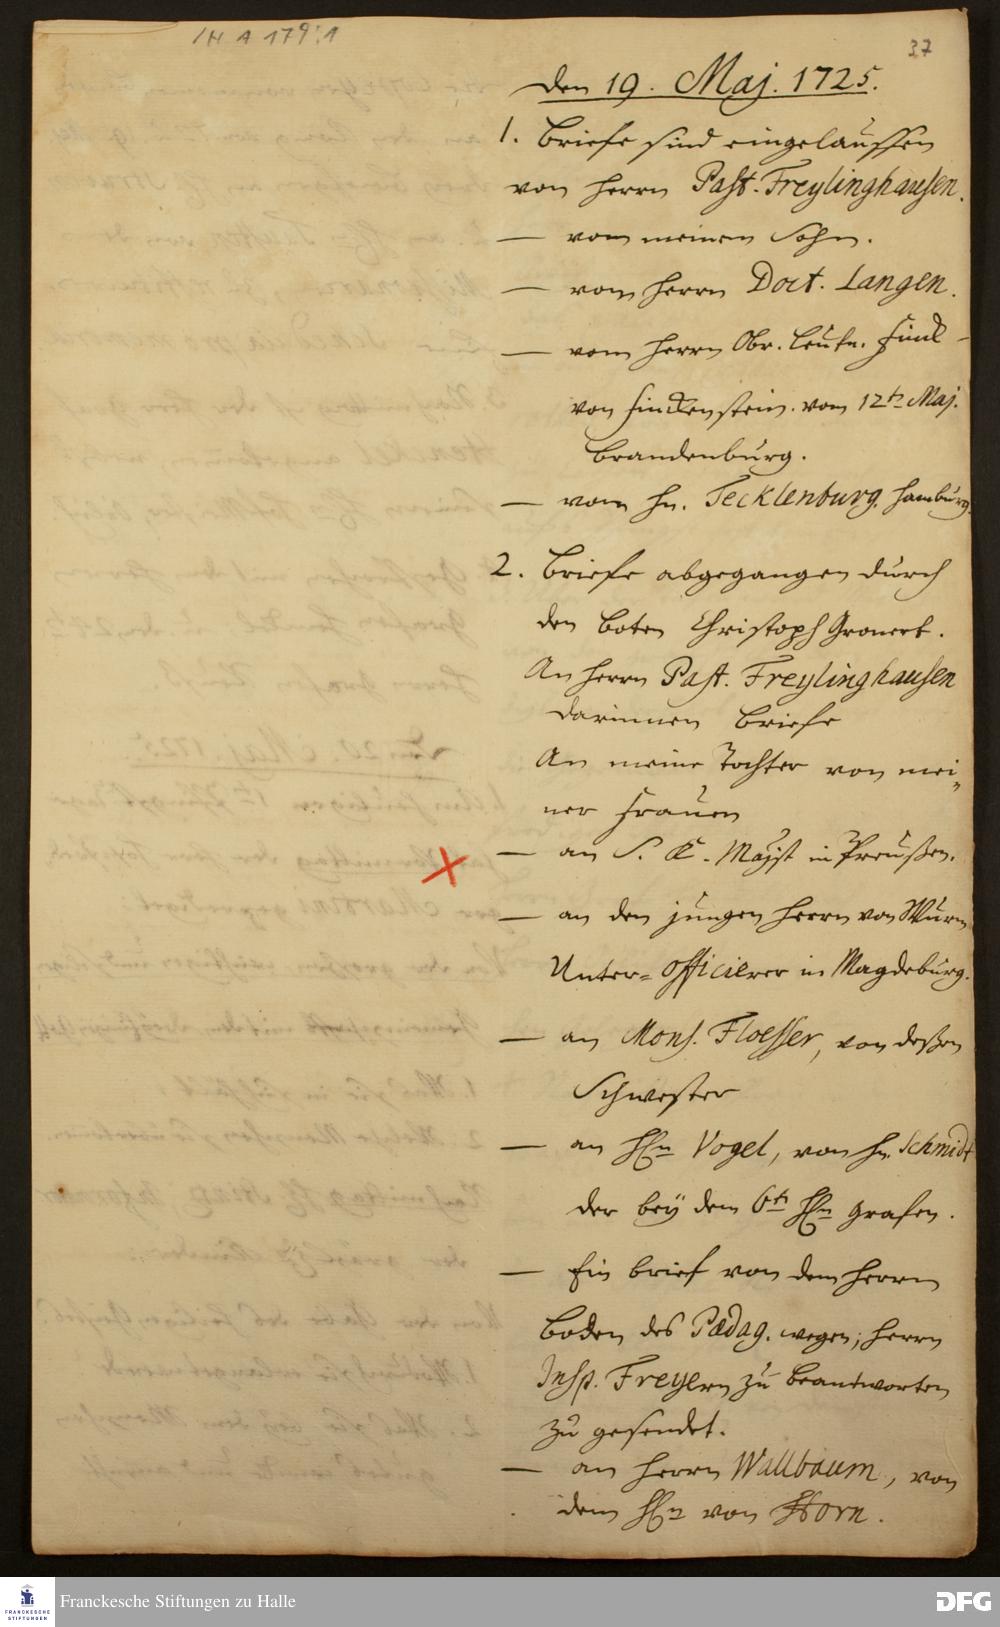 1H A 179:1
37
Den 19. Maj. 1725.
1. Briefe sind eingelauffen
von Herrn Past. Freylinghausen.
— von meinem Sohn.
— von Herrn Doct. Langen.
— vom Herrn Obr. Leutn. Finck
von Finckenstein. vom 12t. Maj.
Brandenburg.
— vom Hn. Tecklenburg. Hamburg.
2. Briefe abgegangen durch
den Boten Christoph Gronert.
An Herrn Past. Freylinghausen
darinnen Briefe
An meine Tochter von mei-
ner Frauen
— an S. K. Majst in Preußen.
— an den jungen Herrn von Wurm
Unter= Officierer in Magdeburg.
— an Mons. Floesser, von deßen
Schwester
— an HEn Vogel, von Hn. Schmidt
der beÿ dem 6t. HEn Grafen.
— Ein Brief von dem Herrn
Boden des Pædag. wegen, Herrn
Insp. Freyern zu beantworten
zu gesendet.
— an Herrn Wallbaum, von
dem HEn von Horn.
FRANCKESCHE
STIFTUNGEN
Franckesche Stiftungen zu Halle
DFG